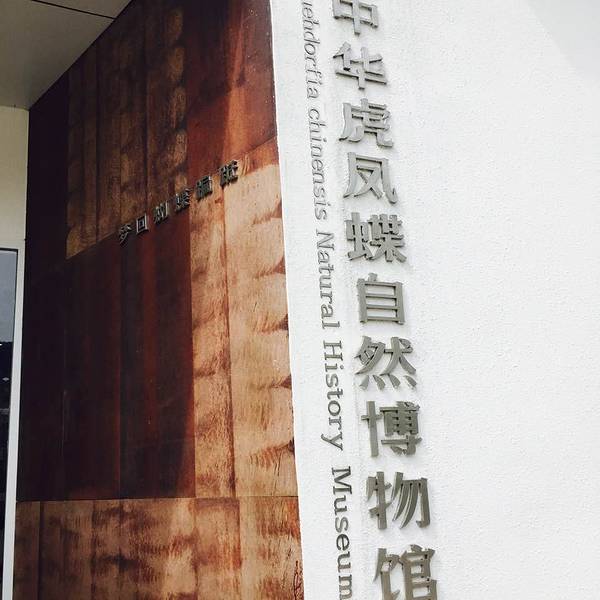 中华虎凤蝶自然博物馆
uehdorfia chinensis Natural History Museum
梦回蝴蝶